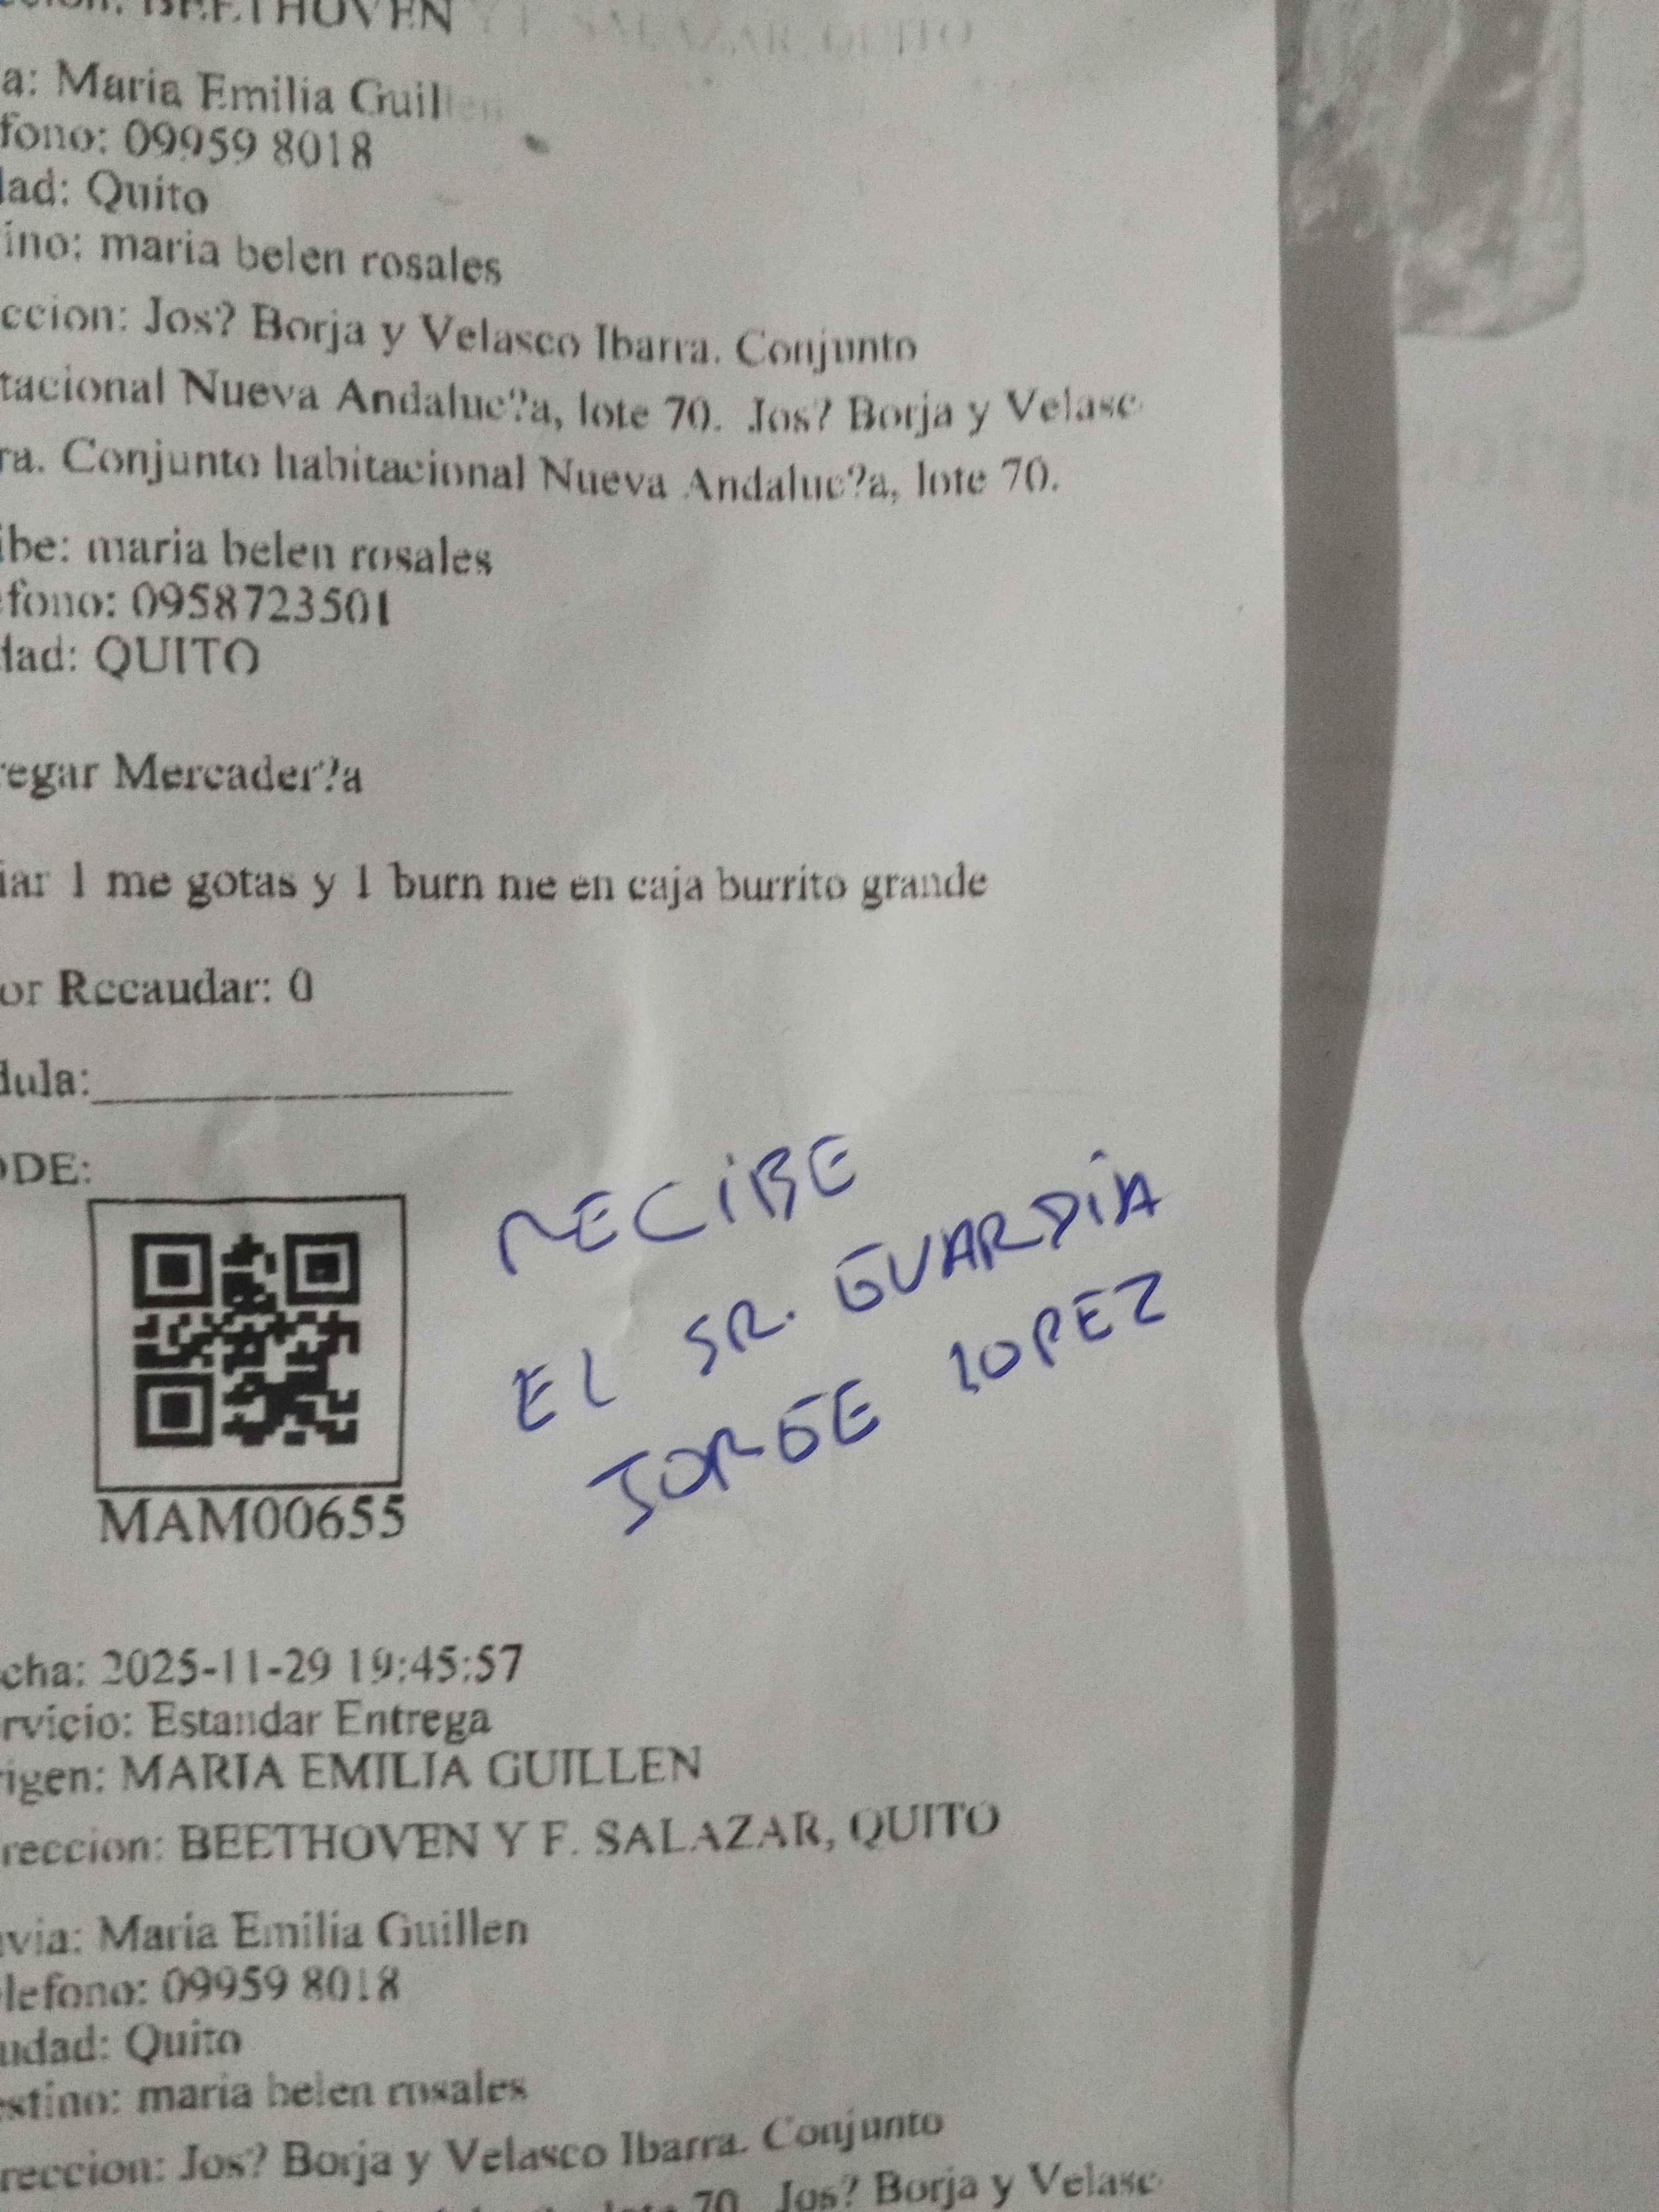 ccion: BEETHOVEN Y F. SALAZAR, QUITO
a: Maria Emilia Guillen
fono: 09959 8018
dad: Quito
ino: maria belen rosales
ccion: Jos? Borja y Velasco Ibarra. Conjunto
tacional Nueva Andaluc?a, lote 70. Jos? Borja y Velasc
ra. Conjunto habitacional Nueva Andaluc?a, lote 70.
ibe: maria belen rosales
efono: 0958723501
dad: QUITO
regar Mercader?a
iar 1 me gotas y 1 burn me en caja burrito grande
or Recaudar: 0
dula:
ODE:
RECIBE
EL SR. GUARDIA
JORGE LOPEZ
MAM00655
cha: 2025-11-29 19:45:57
rvicio: Estandar Entrega
rigen: MARIA EMILIA GUILLEN
reccion: BEETHOVEN Y F. SALAZAR, QUITO
nvia: Maria Emilia Guillen
elefono: 09959 8018
udad: Quito
estino: maria belen rosales
reccion: Jos? Borja y Velasco Ibarra. Conjunto
lote 70. Jos? Borja y Velasc